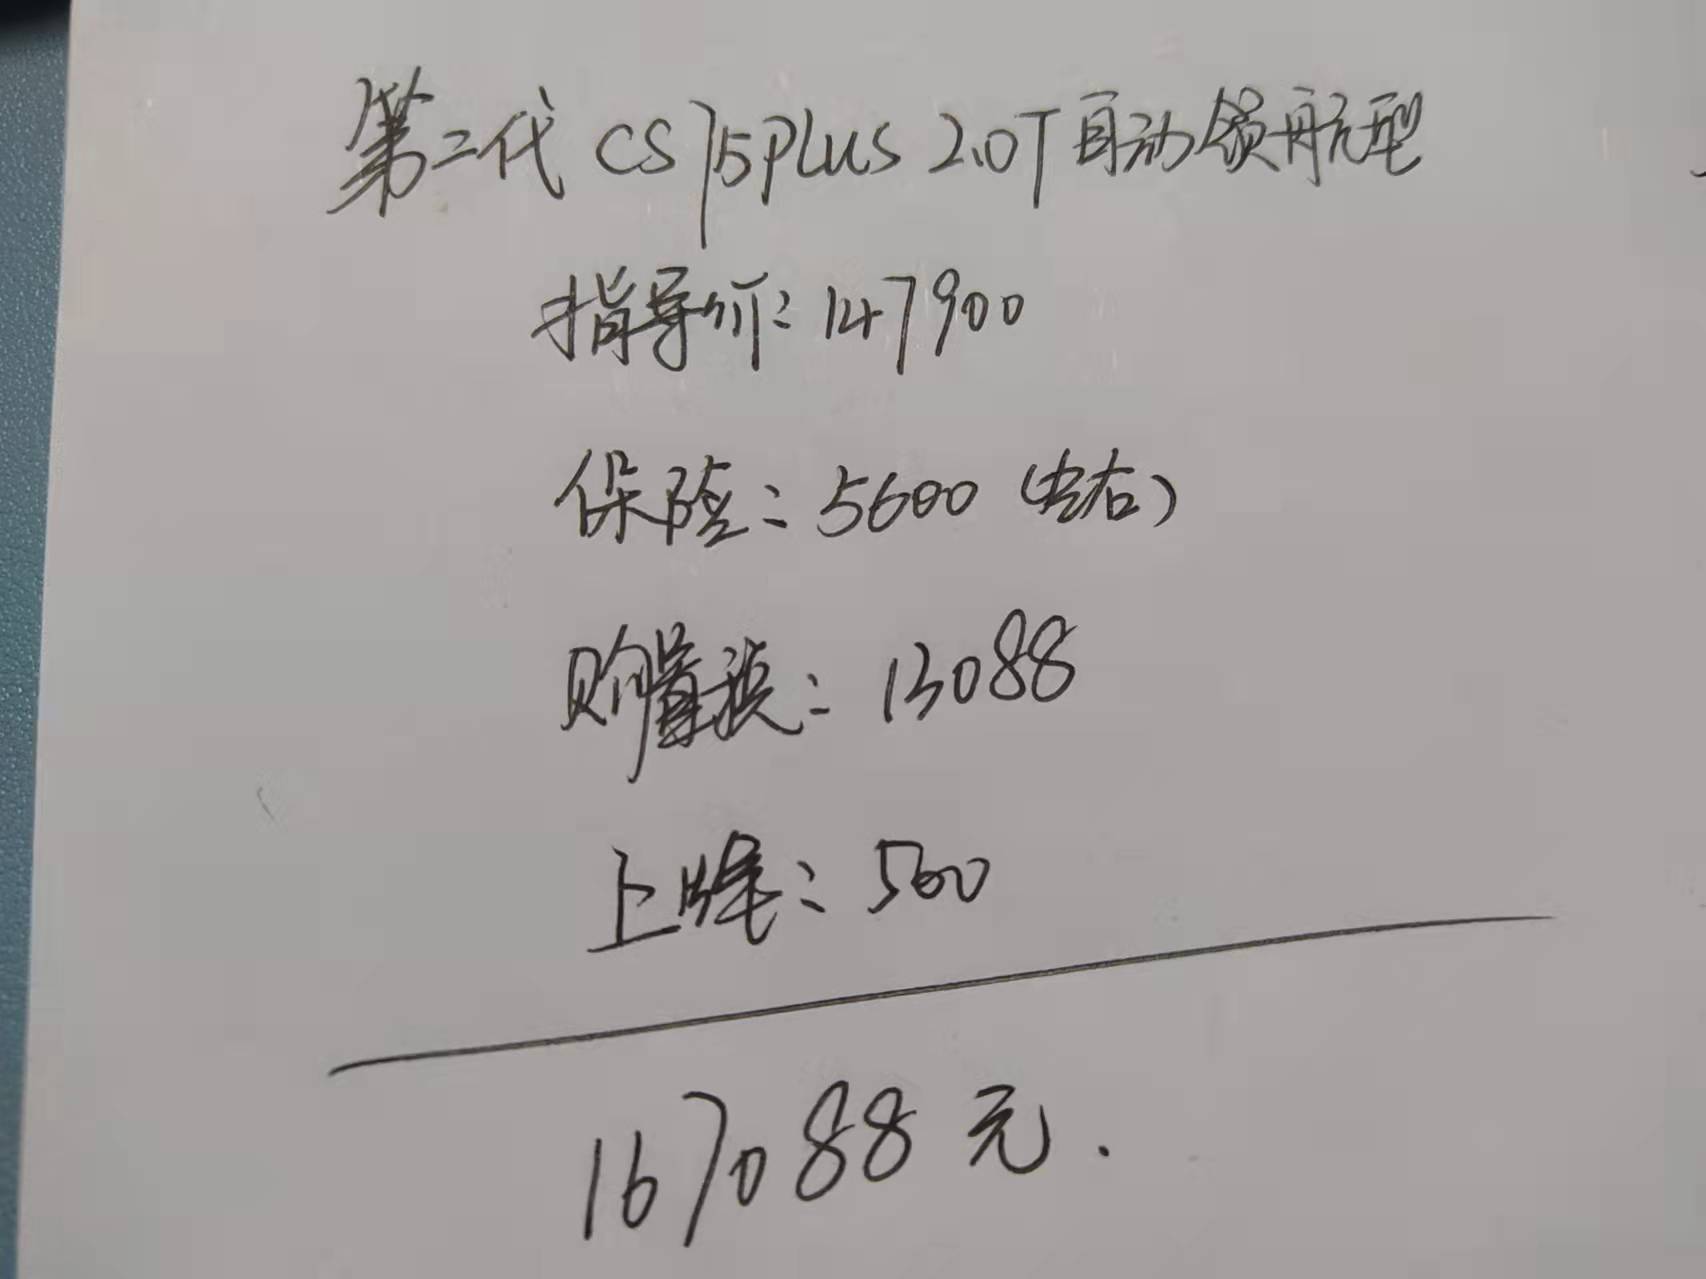 第二代 CS75PLUS 2.0T自动领航型
指导价:147900
保险:5600(左右)
购置税:13088
上牌:500
167088元.